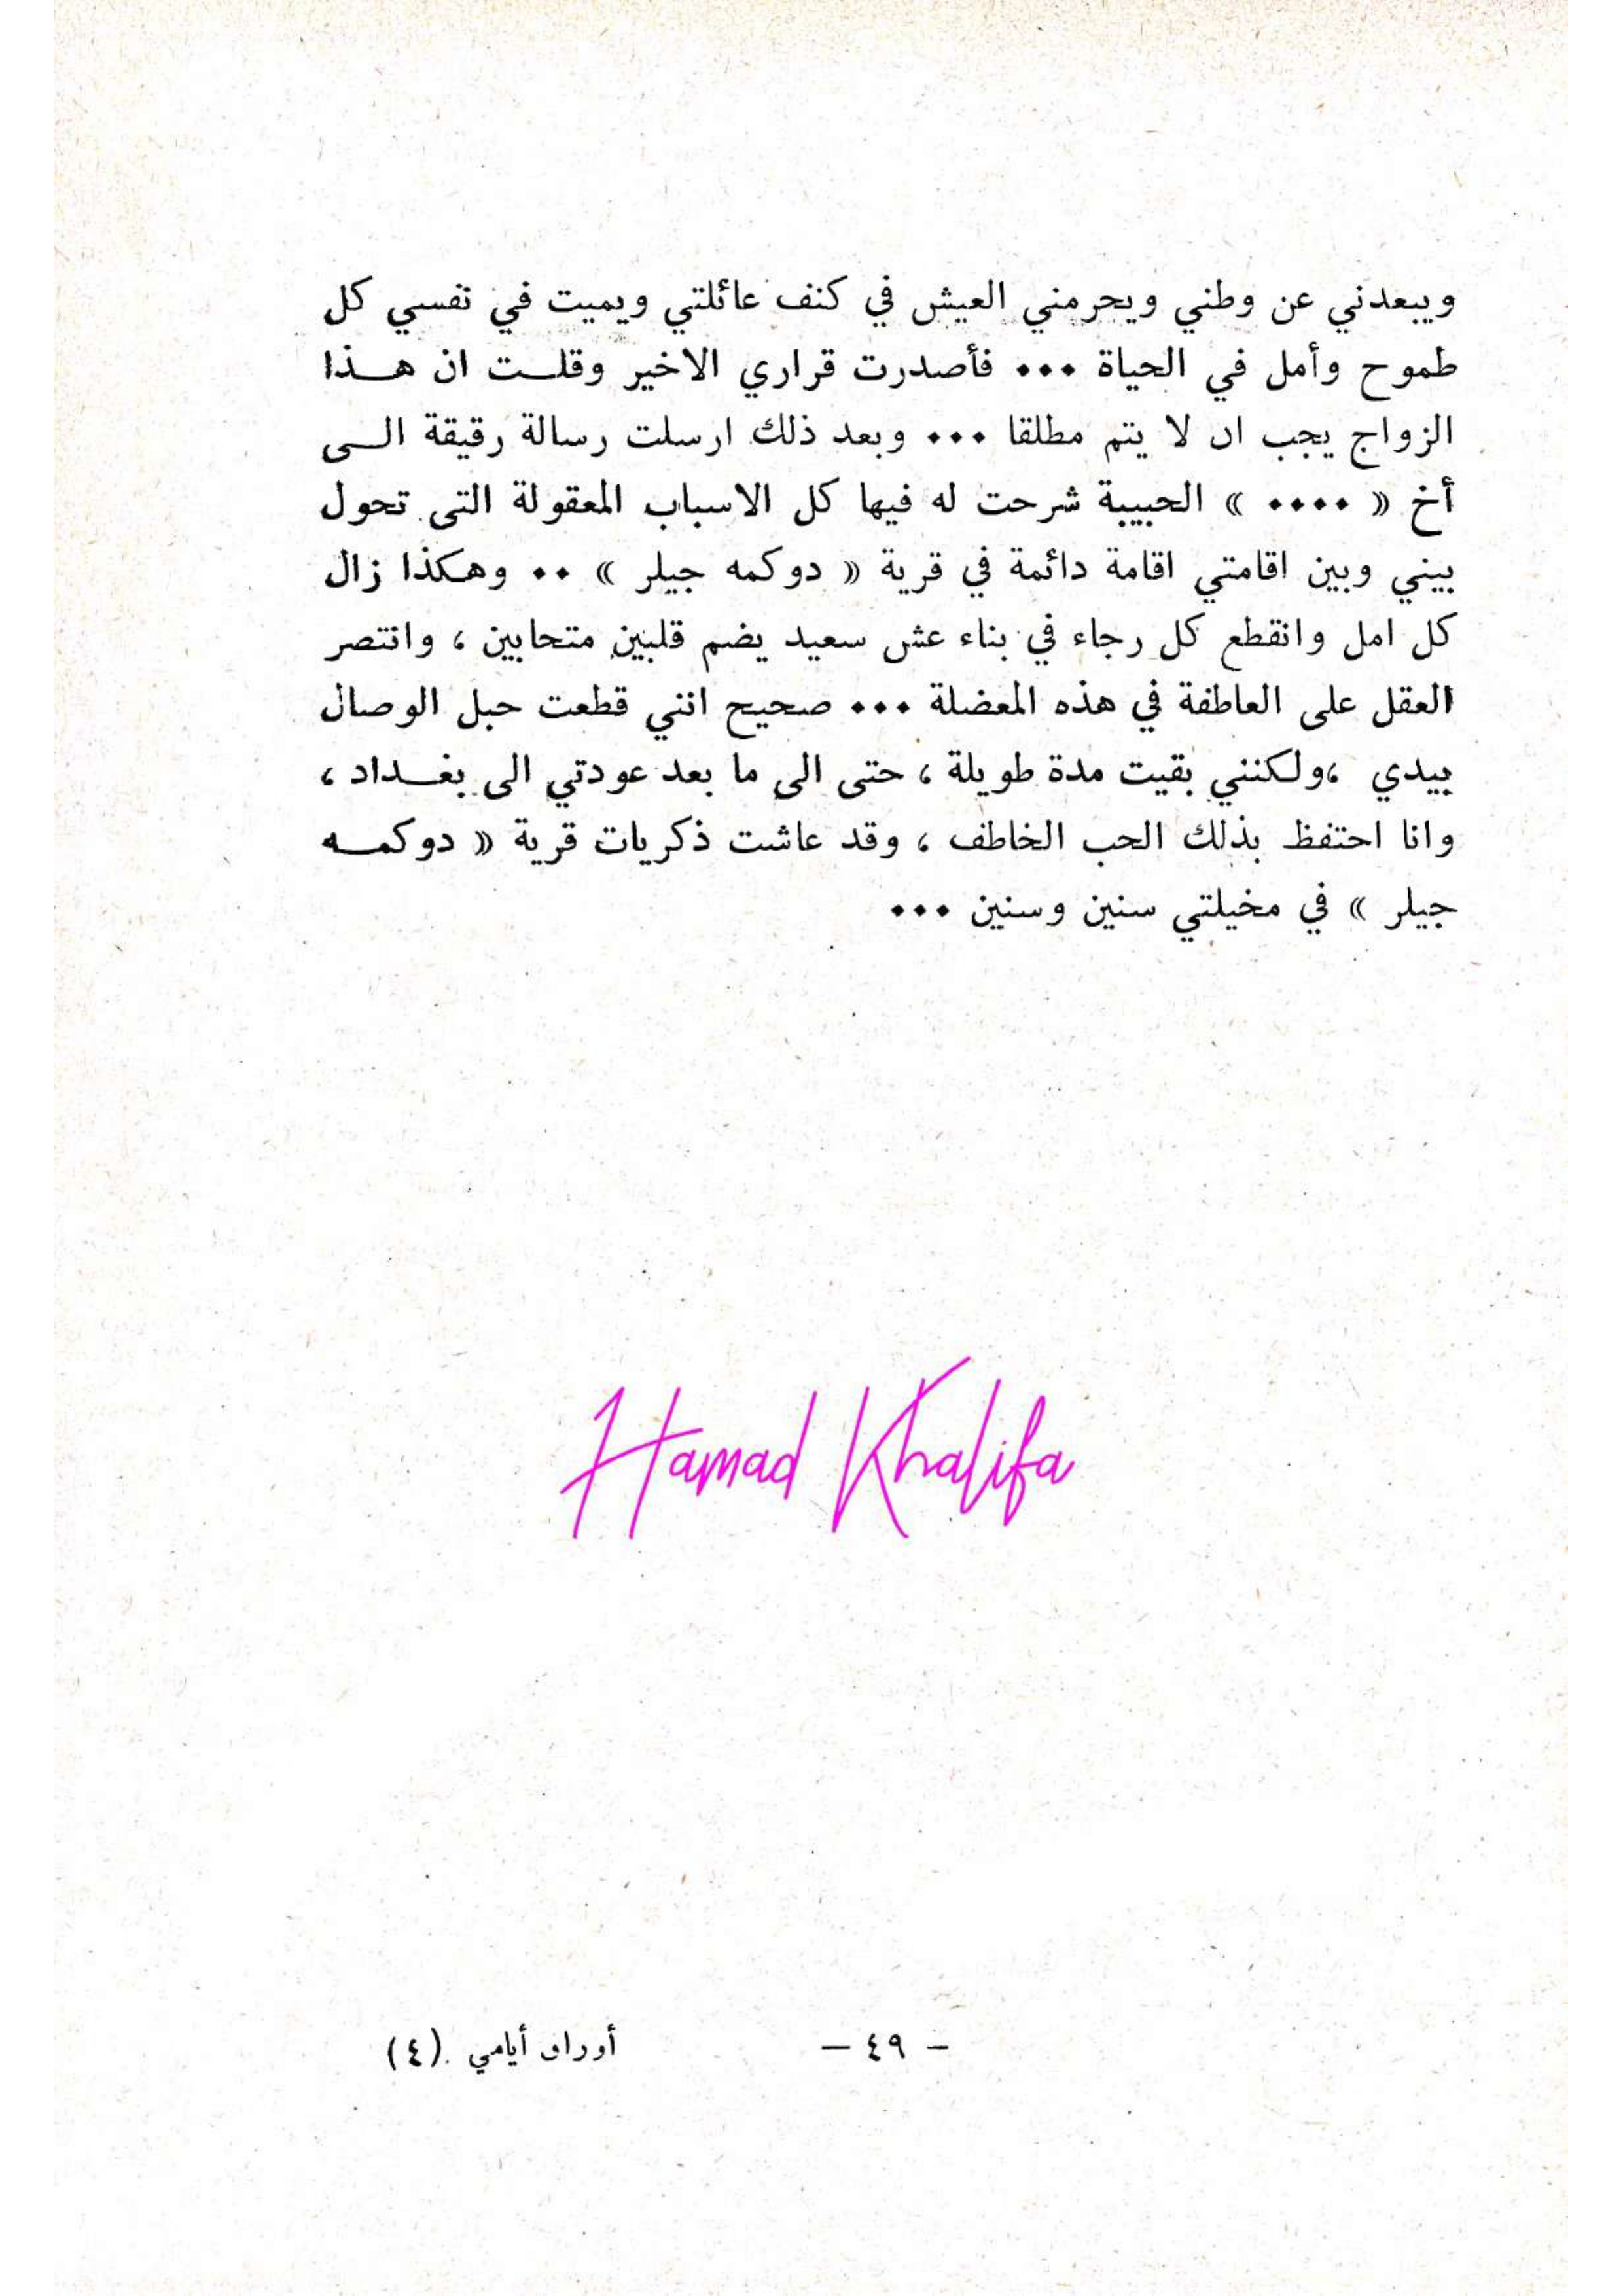 ويبعدني عن وطني ويحرمني العيش في كنف عائلتي ويميت في نفسي كل
طموح وأمل في الحياة ٠٠٠ فأصدرت قراري الاخير وقلـــت ان هـــذا
الزواج يجب ان لا يتم مطلقا ٠٠٠ وبعد ذلك ارسلت رسالة رقيقة الـــى
أخ « ٠٠٠٠ » الحبيبة شرحت له فيها كل الاسباب المعقولة التى تحول
بيني وبين اقامتي اقامة دائمة في قرية « دوكمه جيلر » ٠٠ وهكذا زال
كل امل وانقطع كل رجاء في بناء عش سعيد يضم قلبين متحابين ، وانتصر
العقل على العاطفة في هذه المعضلة ٠٠٠ صحيح انني قطعت حبل الوصال
بيدي ،ولكنني بقيت مدة طويلة ، حتى الى ما بعد عودتي الى بغـــداد ،
وانا احتفظ بذلك الحب الخاطف ، وقد عاشت ذكريات قرية « دوكمـــه
جيلر » في مخيلتي سنين وسنين ٠٠٠
Hamad Khalifa
— ٤٩ — أوراق أيامي (٤)